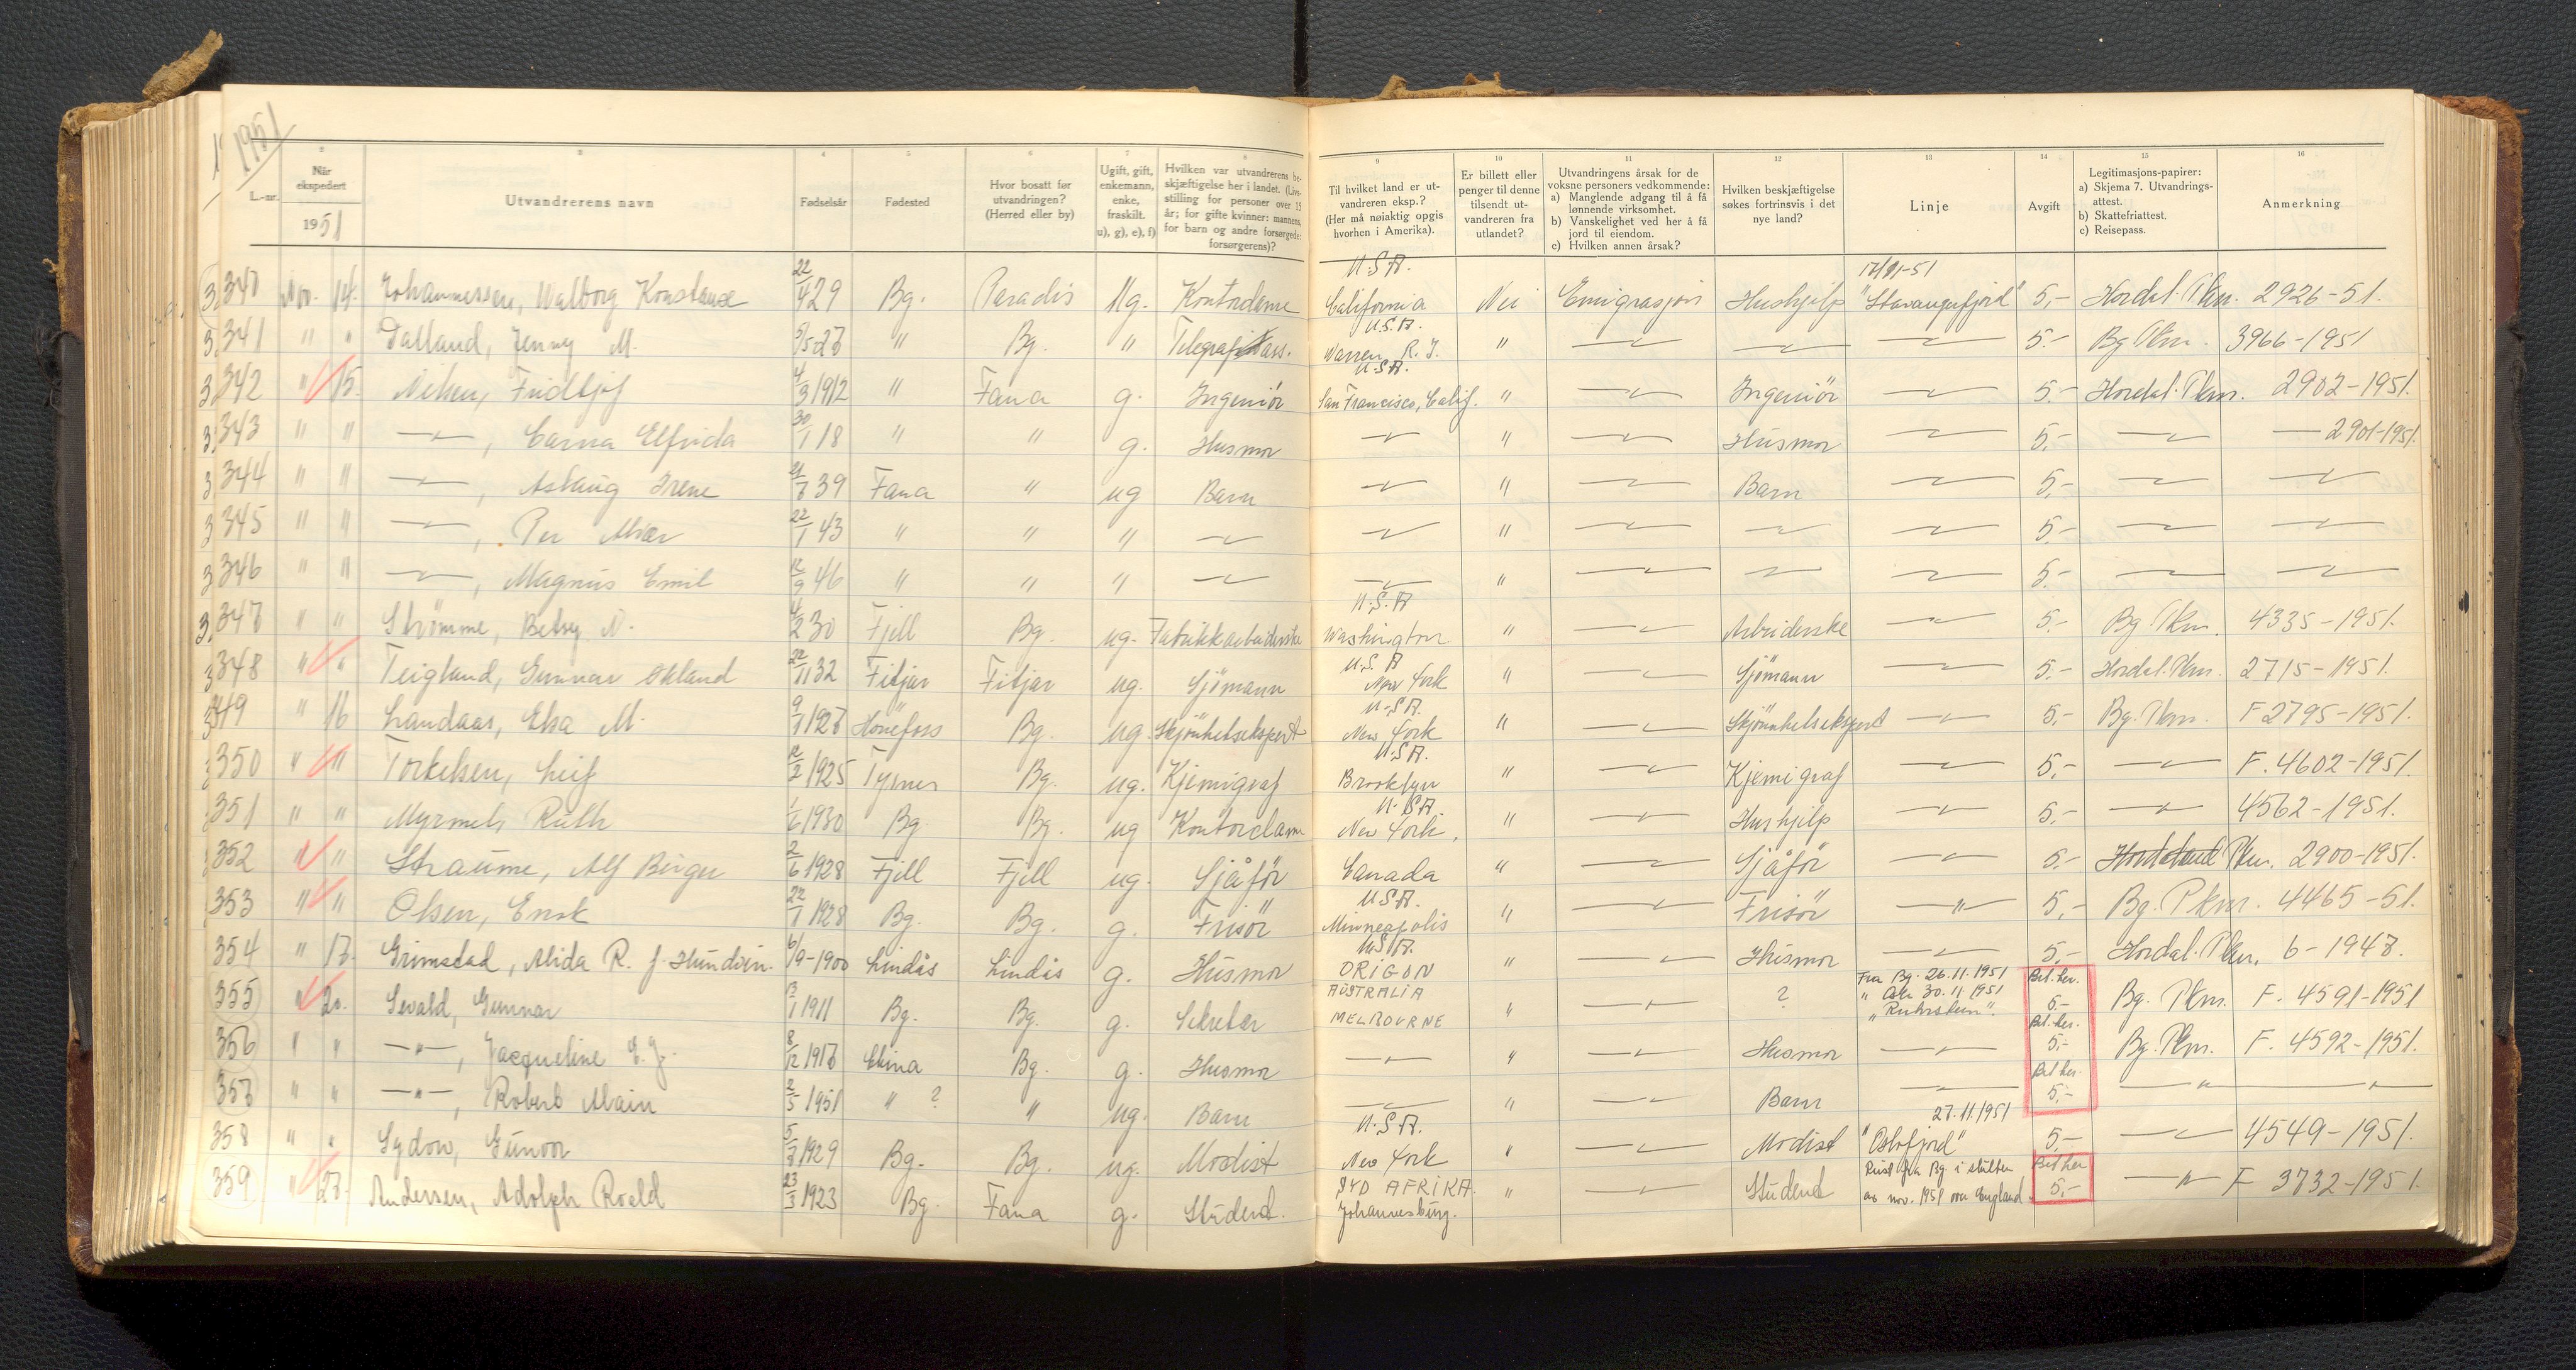 1951
2 3 4 5 6 7 8 9 10 11 12 13 14 15 16
L.-nr. Når ekspedert 1951 Utvandrerens navn Fødselsår Fødested Hvor bosatt før utvandringen? (Herred eller by) Ugift, gift, enkemann, enke, fraskilt. u), g), e), f) Hvilken var utvandrerens beskjæftigelse her i landet. (Livsstilling for personer over 15 år; for gifte kvinner: mannens, for barn og andre forsørgede: forsørgerens)? Til hvilket land er utvandreren eksp.? (Her må nøiaktig opgis hvorhen i Amerika). Er billett eller penger til denne tilsendt utvandreren fra utlandet? Utvandringens årsak for de voksne personers vedkommende: a) Manglende adgang til å få lønnende virksomhet. b) Vanskelighet ved her å få jord til eiendom. c) Hvilken annen årsak? Hvilken beskjæftigelse søkes fortrinsvis i det nye land? Linje Avgift Legitimasjons-papirer: a) Skjema 7. Utvandringsattest. b) Skattefriattest. c) Reisepass. Anmerkning
340 Nov. 14. Johannessen, Walborg Konstanse 22/4 29 Bg. Paradis Ug. Kontordame U.S.A. California Nei Emigrasjon Hushjelp 17/11-51 "Stavangerfjord" 5,- Hordal. Pkm. 2926-51.
341 " " Dalland, Jenny M. 5/5 27 " Bg. " Telegrafass. U.S.A. Warren R.I. " —"— —"— —"— 5.- Bg Pkm. 3966-1951
342 " 15. Nilsen, Fridtjof 4/3 1912 " Fana g. Ingeniör U.S.A. San Francisco, Calif. " —"— Ingeniör —"— 5.- Hordal. Pkm. 2902-1951.
343 " " —"—, Carna Elfrida 30/1 18 " " g. Husmor —"— " —"— Husmor —"— 5.- —"— — 2901-1951.
344 " " —"—, Aslaug Irene 21/7 39 Fana " ug Barn —"— " —"— Barn —"— 5.- —"— —"—
345 " " —"—, Per Alvar 22/1 43 " " " —"— —"— " —"— —"— —"— 5.- —"— —"—
346 " " —"—, Magnus Emil 12/9 46 " " " —"— —"— " —"— —"— —"— 5.- —"— —"—
347 " " Strömme, Betsy N. 4/2 30 Fjell Bg. ug. Fabrikkarbeiderske U.S.A Washington " —"— Arbeiderske —"— 5.- Bg Pkm. 4335-1951.
348 " " Teigland, Gunnar Økland 22/11 32 Fitjar Fitjar ug. Sjömann U.S.A New York " —"— Sjömann —"— 5.- Hordal. Pkm. 2715-1951.
349 " 16 Landaas, Elsa M. 9/1 1927 Hönefoss Bg. ug. Skjönhetsekspert U.S.A. New York " —"— Skjönnhetsekspert —"— 5,- Bg. Pkm. F 2795-1951.
350 " " Torkelsen, Leif 12/2 1925 Tysnes Bg. ug. Kjemigraf U.S.A. Brooklyn " —"— Kjemigraf —"— 5,- —"— F. 4602-1951.
351 " " Myrmel, Ruth 1/6 1930 Bg. Bg. ug Kontordame U.S.A. New York. " —"— Hushjelp —"— 5,- —"— 4562-1951.
352 " " Straume, Alf Birger 2/6 1928 Fjell Fjell ug. Sjåför Canada " —"— Sjåför —"— 5.- Hordaland Pkm. 2900-1951.
353 " " Olsen, Enok 22/1 1928 Bg. Bg. g. Frisör U.S.A. Minneapolis " —"— Frisör —"— 5,- Bg. Pkm. 4465-51.
354 " 17. Grimstad, Alida R. f. Hundvin. 6/9-1900 Lindås Lindås g. Husmor U.S.A. ORIGON " —"— Husmor —"— 5,- Hordal. Pkm. 6-1947.
355 " 20. Sevald, Gunnar 13/1 1911 Bg. Bg. g. Sekretær AUSTRALIA MELBOURNE " —"— ? Fra Bg. 26.11.1951 " Oslo 30.11.1951 Bet. her. 5- Bg. Pkm. F. 4591-1951
356 " " —"—, Jacqueline E. J. 8/12 1917 Kina Bg. g. Husmor —"— " —"— Husmor —"— Bet. her. 5,- Bg. Pkm. F. 4592-1951.
357 " " —"—, Robert Alain 2/5 1951 " ? " ug. Barn —"— " —"— Barn —"— Bet her. 5,- —"— —"—
358 " " Sydow, Gunvor 5/7 1929 Bg. Bg. ug. Modist U.S.A. New York " —"— Modist 27.11.1951 "Oslofjord" 5,- —"— 4549-1951.
359 " 27. Andersen, Adolph Roald 23/3 1923 Bg. Fana g. Student. SYD AFRIKA. Johannesburg. " —"— Student Reist fra Bg. i slutten av nov. 1951 over England. Bet her 5,- —"— F 3732-1951.